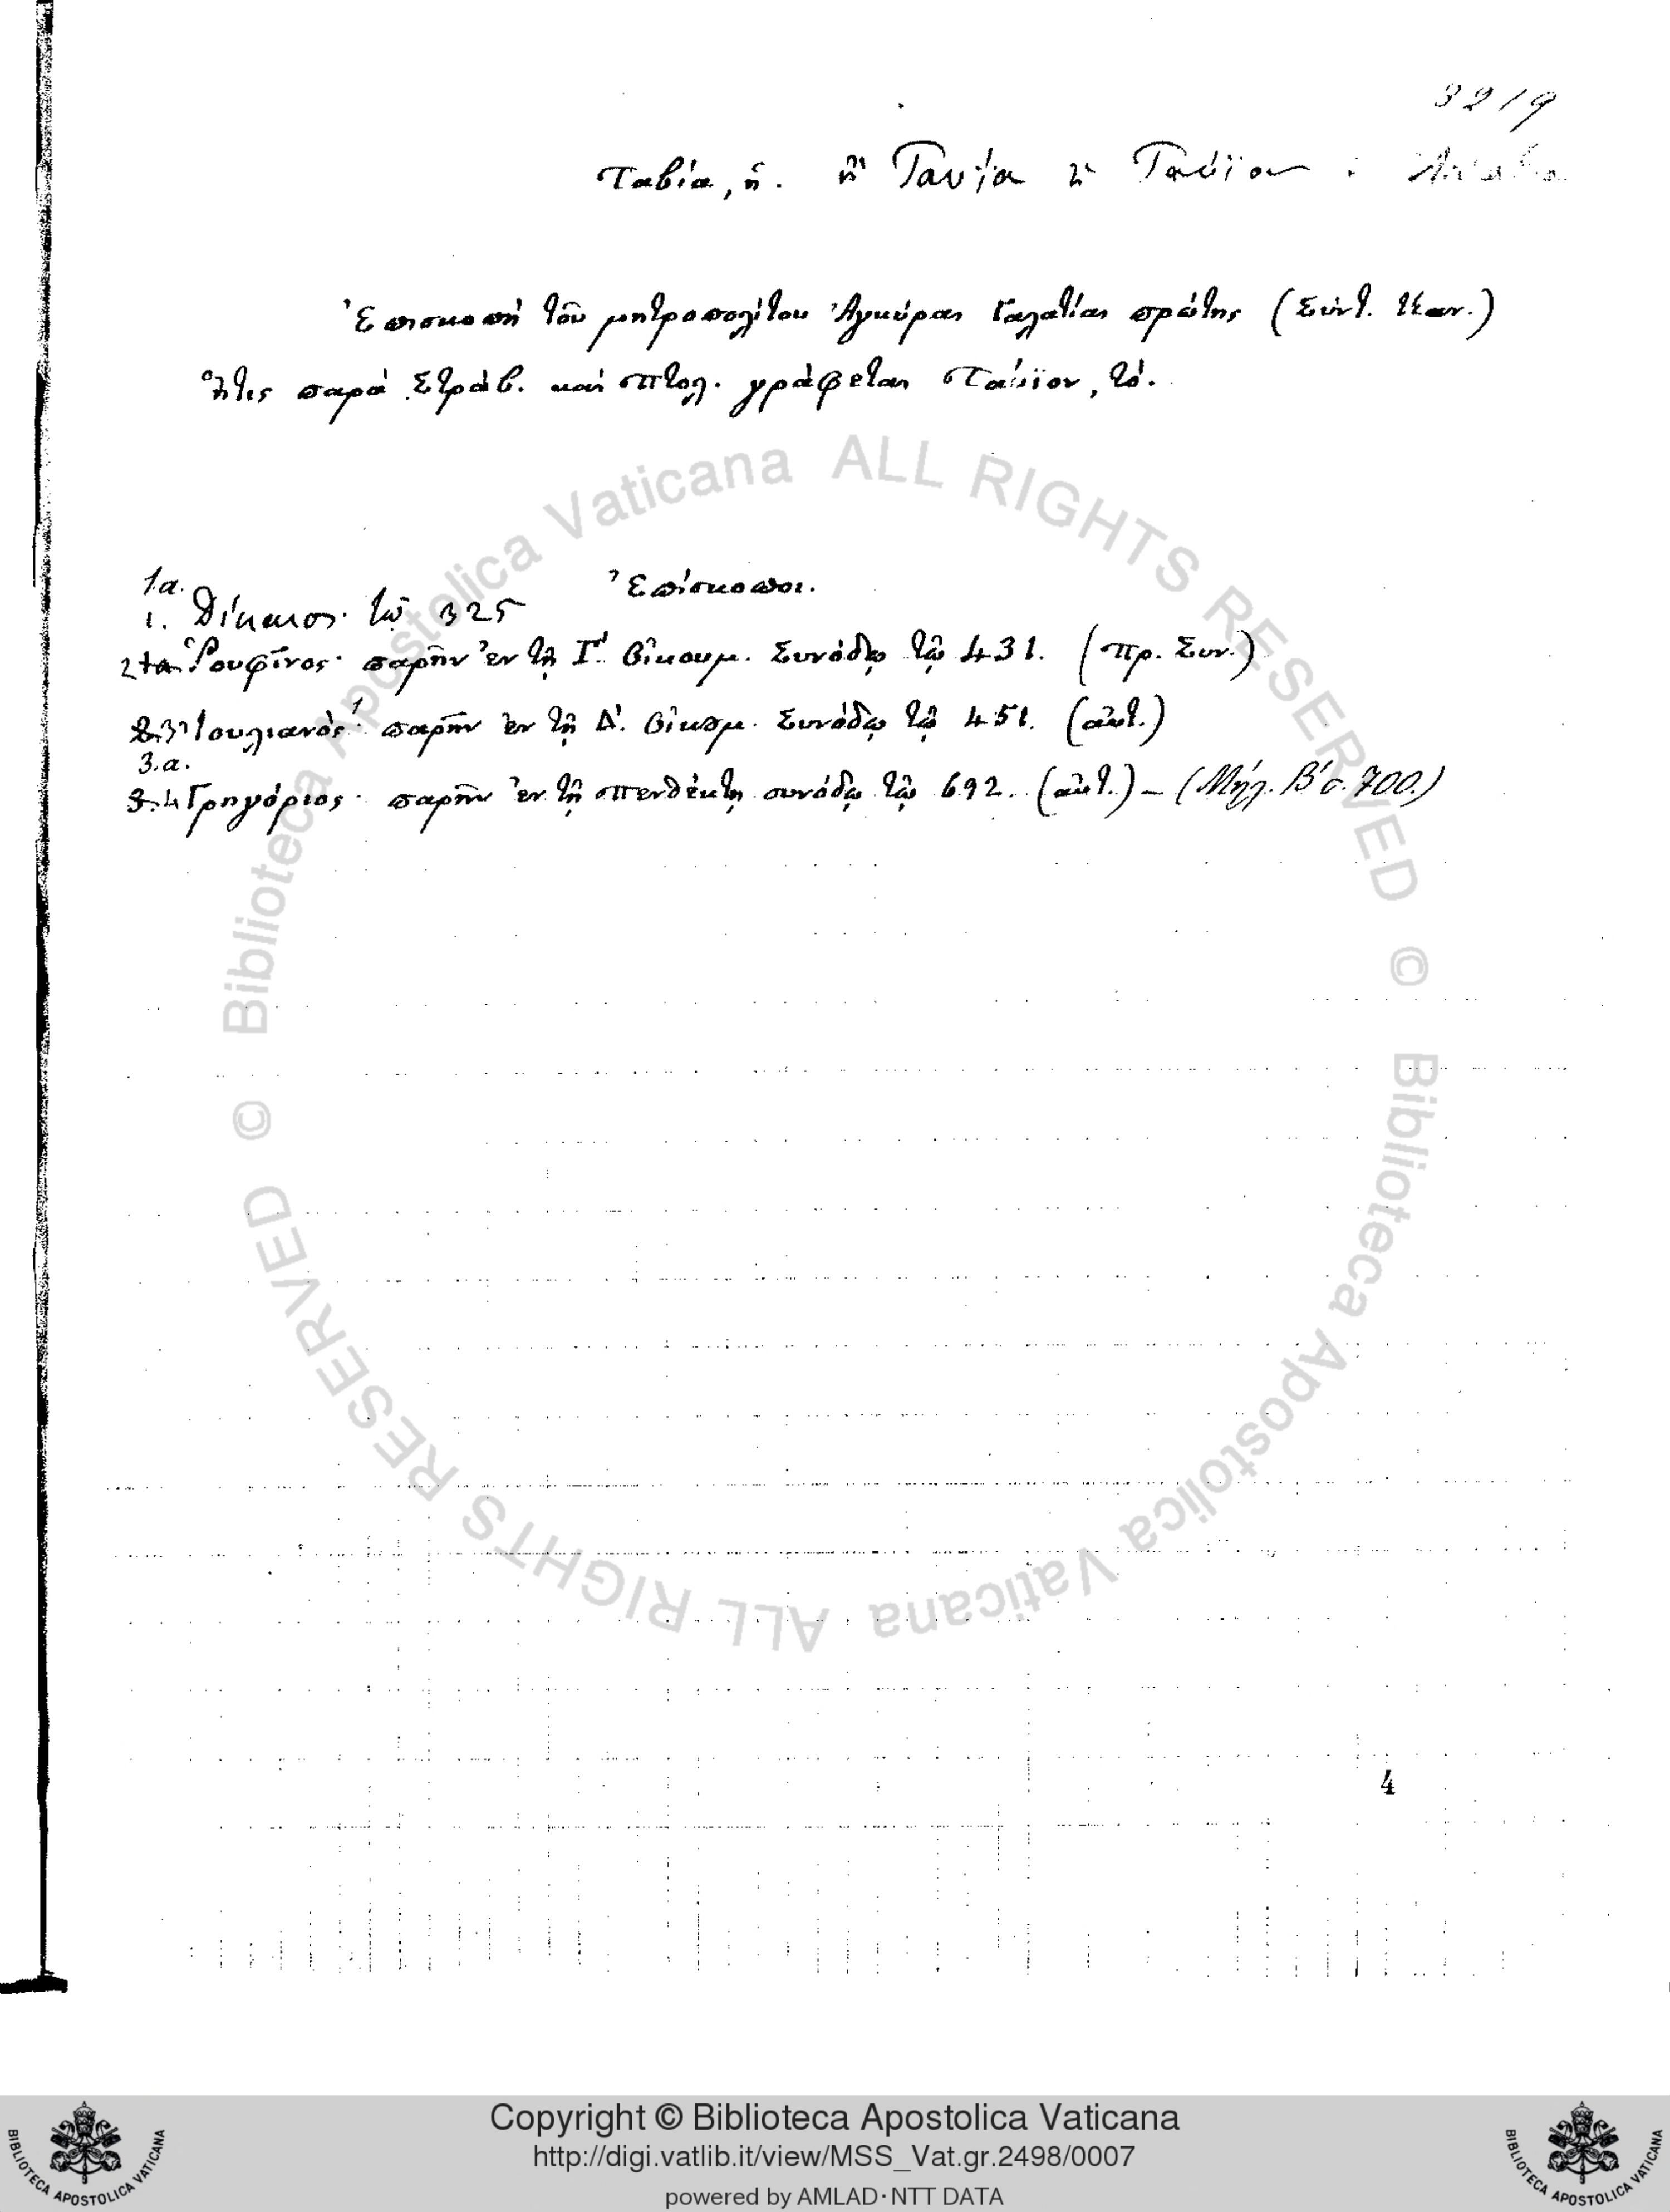 3219
Ταβία, ἡ. ἢ Ταυΐα ἢ Ταούϊον
Ἐπισκοπή τοῦ μητροπολίτου Ἀγκύρας Γαλατίας πρώτης (Σύντ. Καν.)
ἥτις παρά Στράβ. καί Πτολ. γράφεται Ταούϊον, τό.
Ἐπίσκοποι.
1.α.
1. Δίκαιος· τῷ 325
2 1α Ῥουφῖνος· παρῆν ἐν τῇ Γ'. Οἰκουμ. Συνόδῳ τῷ 431. (Πρ. Συν.)
2.3 Ἰουλιανός· παρῆν ἐν τῇ Δ'. Οἰκουμ. Συνόδῳ τῷ 451. (αὐτ.)
3.α.
3.4 Γρηγόριος· παρῆν ἐν τῇ Πενθέκτῃ συνόδῳ τῷ 692. (αὐτ.) – (Μήλ. Β' σ. 700.)
4
© Biblioteca Apostolica Vaticana ALL RIGHTS RESERVED
© Biblioteca Apostolica Vaticana ALL RIGHTS RESERVED
Copyright © Biblioteca Apostolica Vaticana
http://digi.vatlib.it/view/MSS_Vat.gr.2498/0007
powered by AMLAD·NTT DATA
BIBLIOTECA APOSTOLICA VATICANA
BIBLIOTECA APOSTOLICA VATICANA